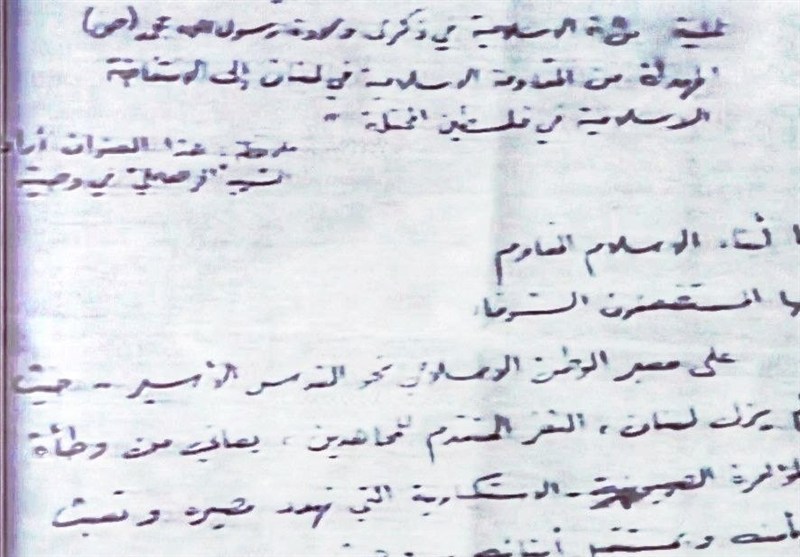 عملية الاسلامية في ذكرى ولادة رسول الله محمد (ص)
المهداة من المقاومة الاسلامية في لبنان إلى الانتفاضة
الاسلامية في فلسطين المحتلة "
ملاحظة: هذا العنوان أراد
في وصيته
أبناء الاسلام المقاوم
المستضعفون الشرفاء
على معبر الوطن الاسلامي نحو القدس الأسير - حيث
يزل لبنان، الثغر المتقدم للمجاهدين، يعاني من وطأة
الاستكبارية التي تهدد مصيره وتعبث
ومستقبل أبنائه